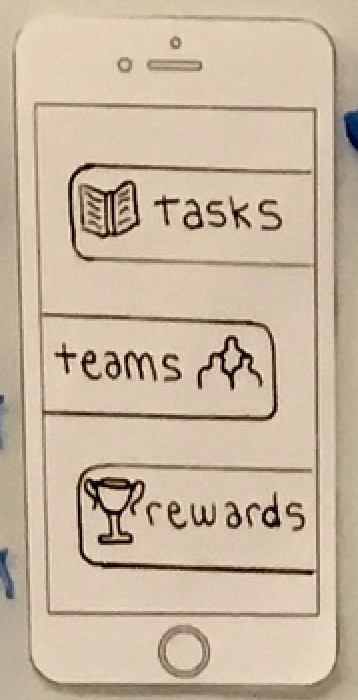 tasks
teams
rewards